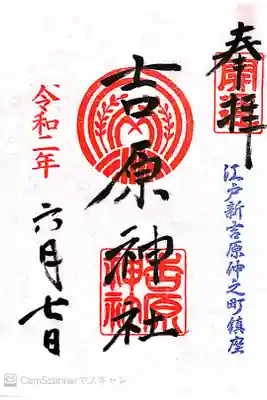 奉拝
江戸新吉原仲之町鎮座
吉原神社
吉原
神社
令和二年
六月七日
CS CamScannerでスキャン